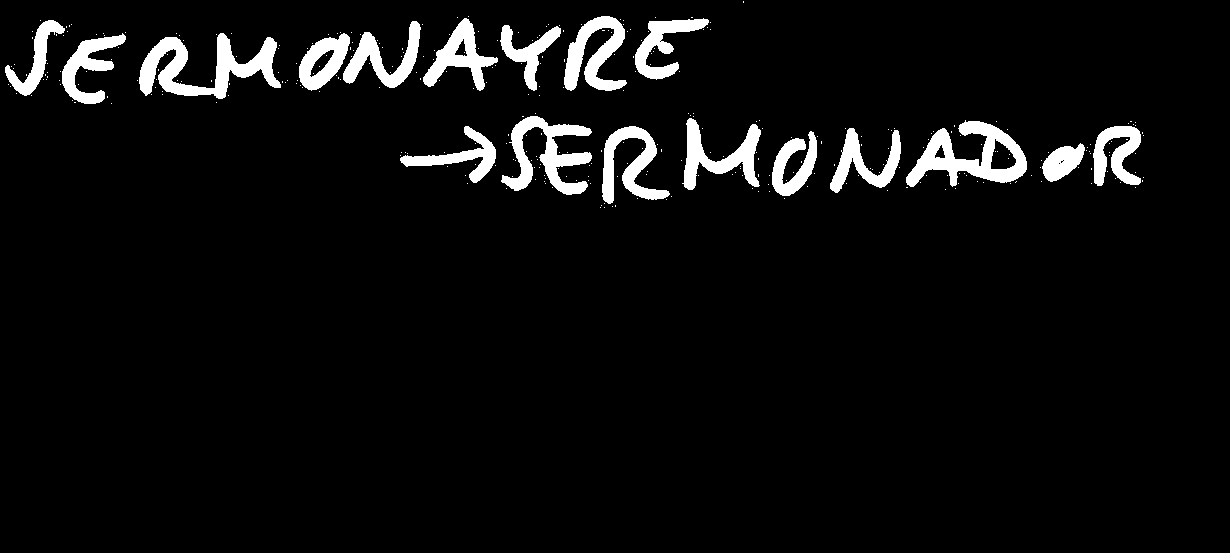 SERMONAYRE
→SERMONADOR